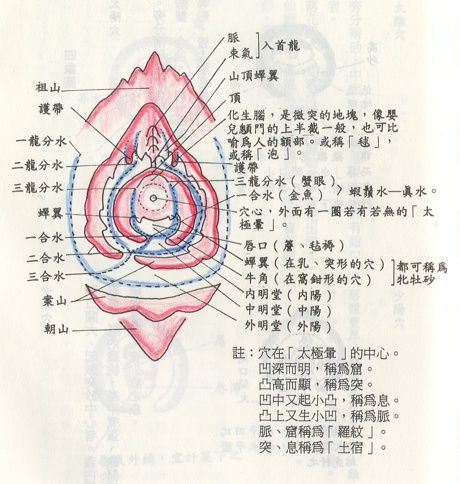 脈
束氣
入首龍
山頂蟬翼
頂
化生腦，是微突的地塊，像嬰
兒顖門的上半截一般，也可比
喻爲人的額部。或稱「毬」，
或稱「泡」。
護帶
三龍分水（蟹眼）
一合水（金魚）
蝦鬚水—眞水。
穴心，外面有一圈若有若無的「太
極暈」。
唇口（蕈、毡褥）
蟬翼（在乳、突形的穴）
牛角（在窩鉗形的穴）
都可稱爲
牝牡砂
內明堂（內陽）
中明堂（中陽）
外明堂（外陽）
祖山
護帶
一龍分水
二龍分水
三龍分水
蟬翼
一合水
二合水
三合水
案山
朝山
註：穴在「太極暈」的中心。
凹深而明，稱爲窟。
凸高而顯，稱爲突。
凹中又起小凸，稱爲息。
凸上又生小凹，稱爲脈。
脈、窟稱爲「羅紋」。
突、息稱爲「土宿」。